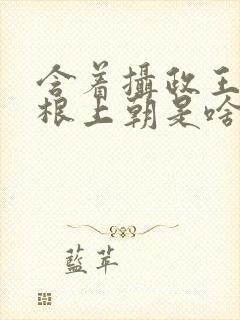 含着攝政王
根上朝是啥
藍苹